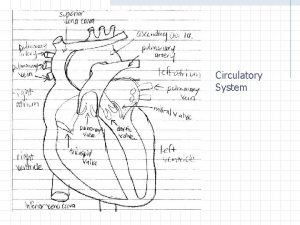 superior
vena cava
ascending
pulmonary
artery
pulmonary
artery
pulmonary
vein
left atrium
pulmonary
vein
right
atrium
mitral valve
pulmonary
valve
aortic
valve
tricuspid
valve
left
ventricle
right
ventricle
Inferior vena cava
Circulatory
System